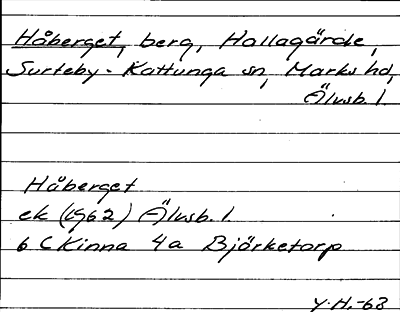 Håberget, berg, Hallagärde,
Surteby-Kattunga sn, Marks hd,
Älvsb. l.
Håberget
ek (1962) Älvsb. l.
6 C Kinna 4a Björketorp
Y.H.-68